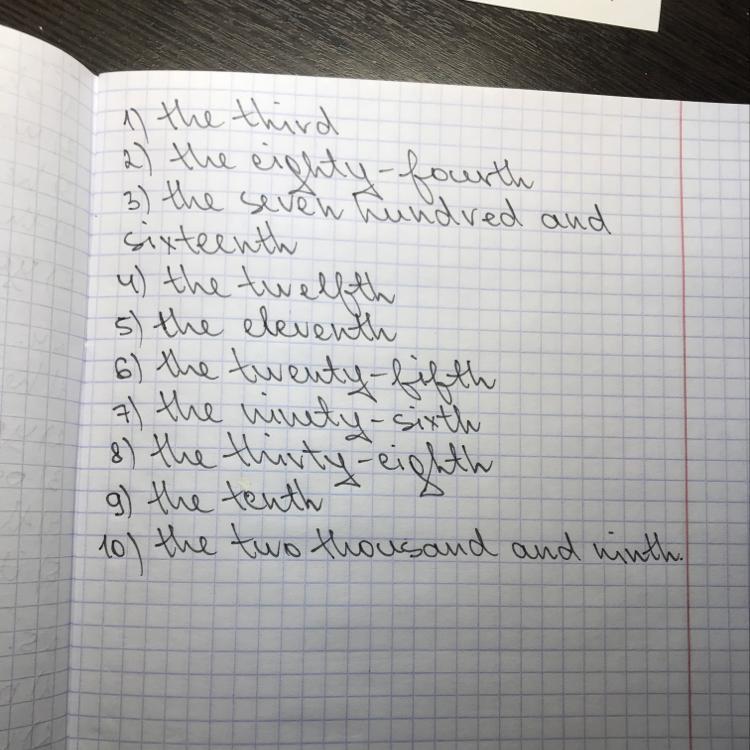 1) the third
2) the eighty-fourth
3) the seven hundred and
sixteenth
4) the twelfth
5) the eleventh
6) the twenty-fifth
7) the ninety-sixth
8) the thirty-eighth
9) the tenth
10) the two thousand and ninth.